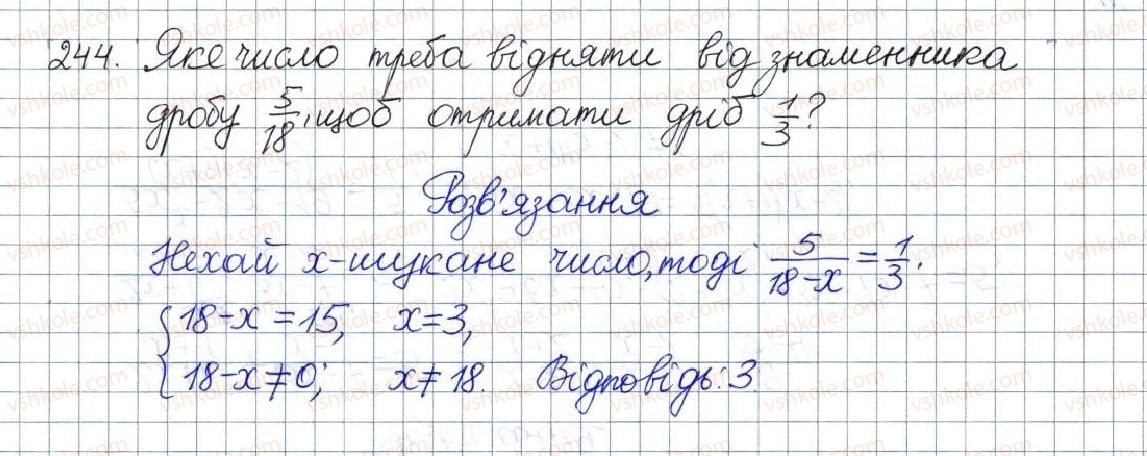 244. Яке число треба відняти від знаменника
дробу 5/18, щоб отримати дріб 1/3?
Розв'язання
Нехай x-шукане число, тоді 5/(18-x) = 1/3.
{ 18-x = 15, x=3,
18-x ≠ 0; x ≠ 18. Відповідь: 3